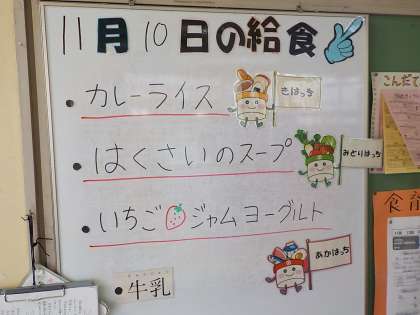 11月10日の給食
• カレーライス
きはっち
• はくさいのスープ
みどりはっち
• いちごジャムヨーグルト
あかはっち
• 牛乳
こんだて
食育